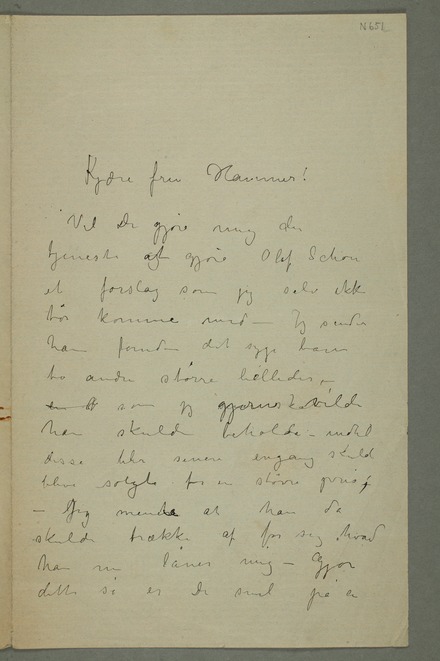 N 651
Kjære fru Hammer!
Vil De gjøre mig den
tjeneste at gjøre Olaf Schou
et forslag som jeg selv ikke
tør komme med – Jeg sender
ham foruden det syge barn
to andre større billeder –
som jeg gjerne vilde
han skulde beholde – indtil
disse blir senere engang skuld
blive solgte for en større pris
– Jeg mente at han da
skulde trække af for sig hvad
han nu låner mig – Gjør
dette så er De snil på en